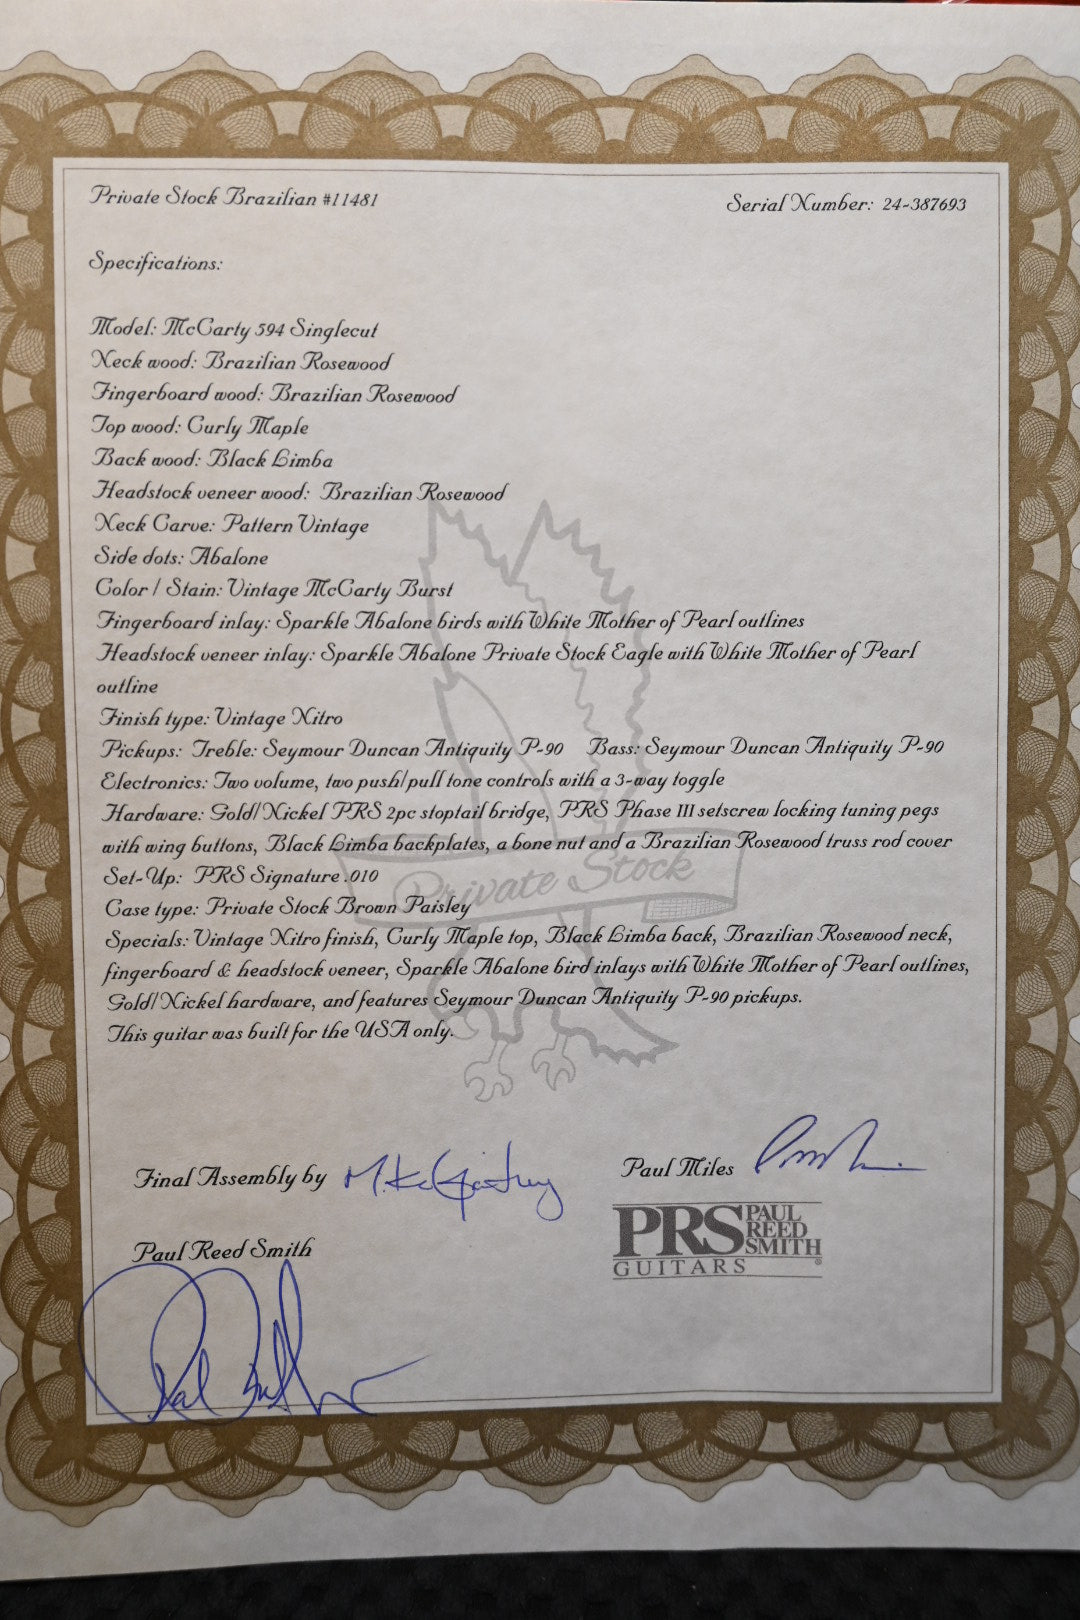 Private Stock Brazilian #11481
Serial Number: 24-387693
Specifications:
Model: McCarty 594 Singlecut
Neck wood: Brazilian Rosewood
Fingerboard wood: Brazilian Rosewood
Top wood: Curly Maple
Back wood: Black Limba
Headstock veneer wood: Brazilian Rosewood
Neck Carve: Pattern Vintage
Side dots: Abalone
Color / Stain: Vintage McCarty Burst
Fingerboard inlay: Sparkle Abalone birds with White Mother of Pearl outlines
Headstock veneer inlay: Sparkle Abalone Private Stock Eagle with White Mother of Pearl
outline
Finish type: Vintage Nitro
Pickups: Treble: Seymour Duncan Antiquity P-90 Bass: Seymour Duncan Antiquity P-90
Electronics: Two volume, two push/pull tone controls with a 3-way toggle
Hardware: Gold/Nickel PRS 2pc stoptail bridge, PRS Phase III setscrew locking tuning pegs
with wing buttons, Black Limba backplates, a bone nut and a Brazilian Rosewood truss rod cover
Private Stock
Set-Up: PRS Signature .010
Case type: Private Stock Brown Paisley
Specials: Vintage Nitro finish, Curly Maple top, Black Limba back, Brazilian Rosewood neck,
fingerboard & headstock veneer, Sparkle Abalone bird inlays with White Mother of Pearl outlines,
Gold/Nickel hardware, and features Seymour Duncan Antiquity P-90 pickups.
This guitar was built for the USA only.
Final Assembly by
Paul Miles
PRS PAUL REED SMITH
GUITARS®
Paul Reed Smith